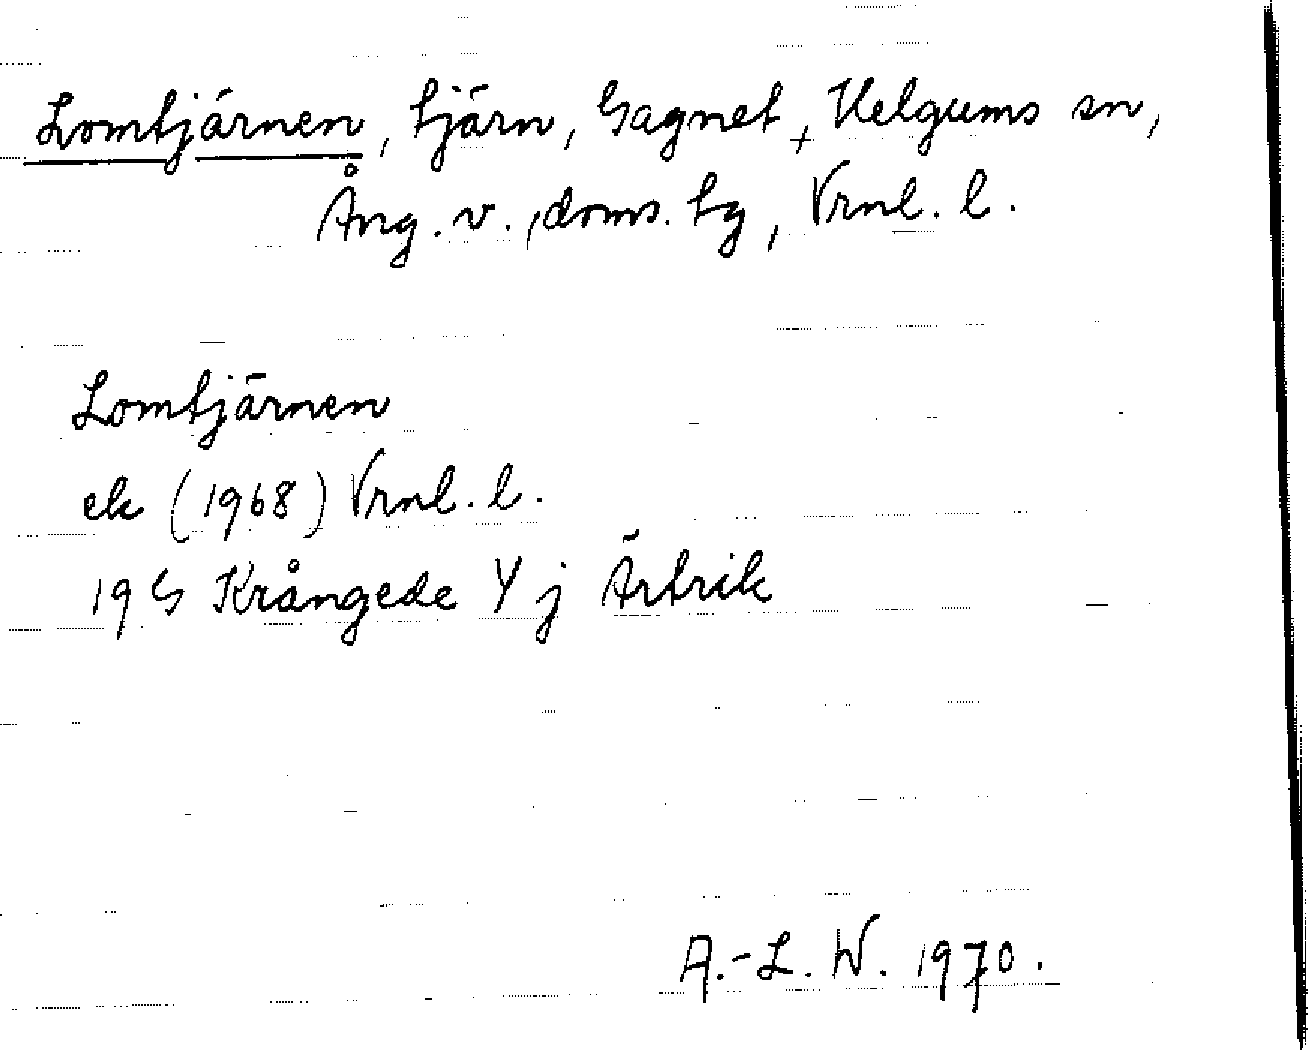 Lomtjärnen, tjärn, Gagnet, Helgums sn,
Ång. v. doms. tg, Vrnl. l.
Lomtjärnen
ek (1968) Vrnl. l.
19 G Krångede Y j Ärtrik
A.-L. W. 1970.